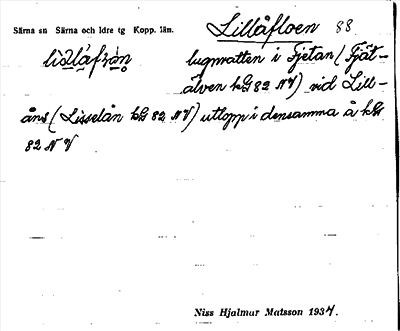 Särna sn Särna och Idre tg Kopp. län.
Lillåfloen 88
lugnvatten i Fjetan (Fjät-
älven kG 82 NV) vid Lill-
åns (Lisselån kG 82 NV) utlopp i densamma å kG
82 NV
Niss Hjalmar Matsson 1934.